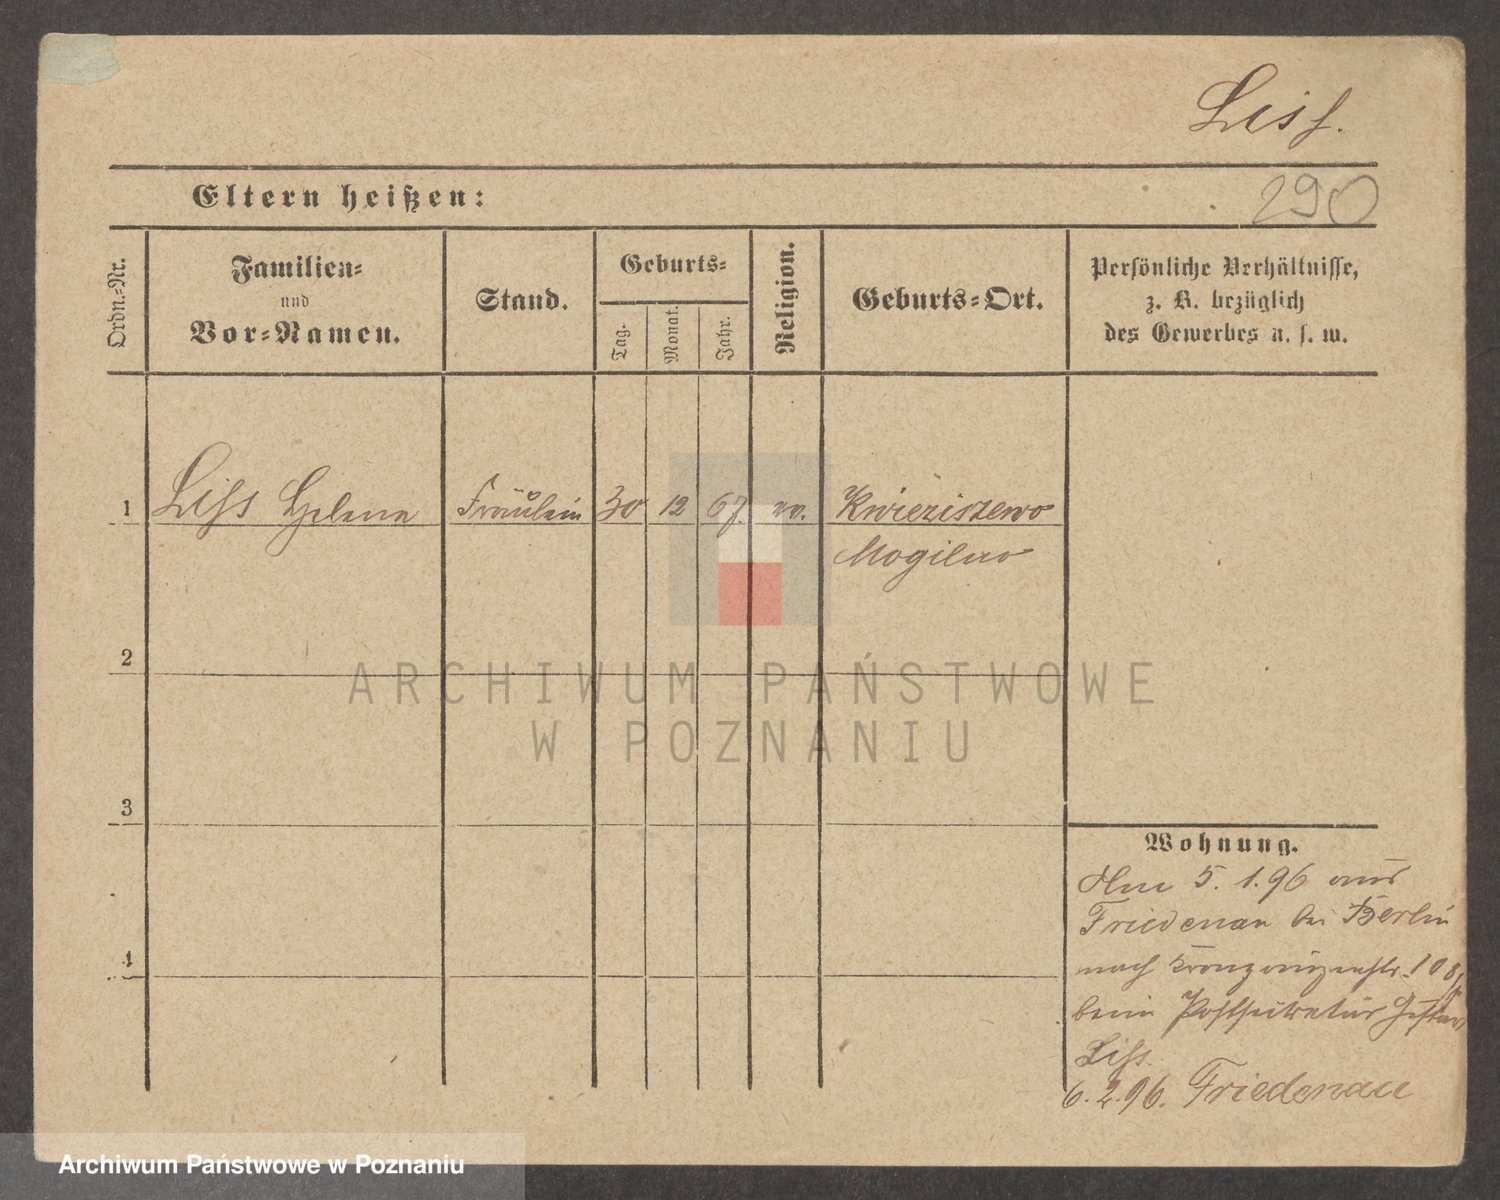 Liss.
Eltern heißen:
290
Ordn.-Nr.
Familien-
und
Vor-Namen.
Stand.
Geburts-
Tag.
Monat.
Jahr.
Religion.
Geburts-Ort.
Persönliche Verhältnisse,
z. B. bezüglich
des Gewerbes u. s. w.
1 Liss Helene Fräulein 30 12 67. ev. Kwieziszewo
Mogilno
2
3
4
Wohnung.
Am 5. 1. 96 aus
Friedenau bei Berlin
nach Kronprinzenstr. 108
beim Postsekretär Gustav
Liss.
6. 2. 96. Friedenau
ARCHIWUM PAŃSTWOWE
W POZNANIU
Archiwum Państwowe w Poznaniu